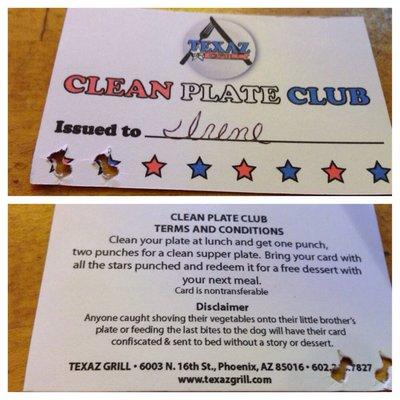 TEXAZ
GRILL
CLEAN PLATE CLUB
Issued to Irene
CLEAN PLATE CLUB
TERMS AND CONDITIONS
Clean your plate at lunch and get one punch,
two punches for a clean supper plate. Bring your card with
all the stars punched and redeem it for a free dessert with
your next meal.
Card is nontransferable
Disclaimer
Anyone caught shoving their vegetables onto their little brother's
plate or feeding the last bites to the dog will have their card
confiscated & sent to bed without a story or dessert.
TEXAZ GRILL • 6003 N. 16th St., Phoenix, AZ 85016 • 602.2 .7827
www.texazgrill.com